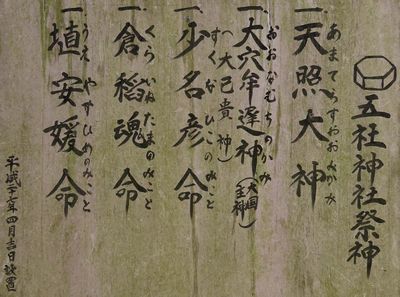 五社神社祭神
一天照大神
あまてらすおおみかみ
一大穴牟遅神
おおなむちのかみ
(大国主神)
(大己貴神)
一少名彦命
すくなひこのみこと
一倉稲魂命
くらいねたまのみこと
一埴安媛命
うえやすひめのみこと
平成二十七年四月吉日設置